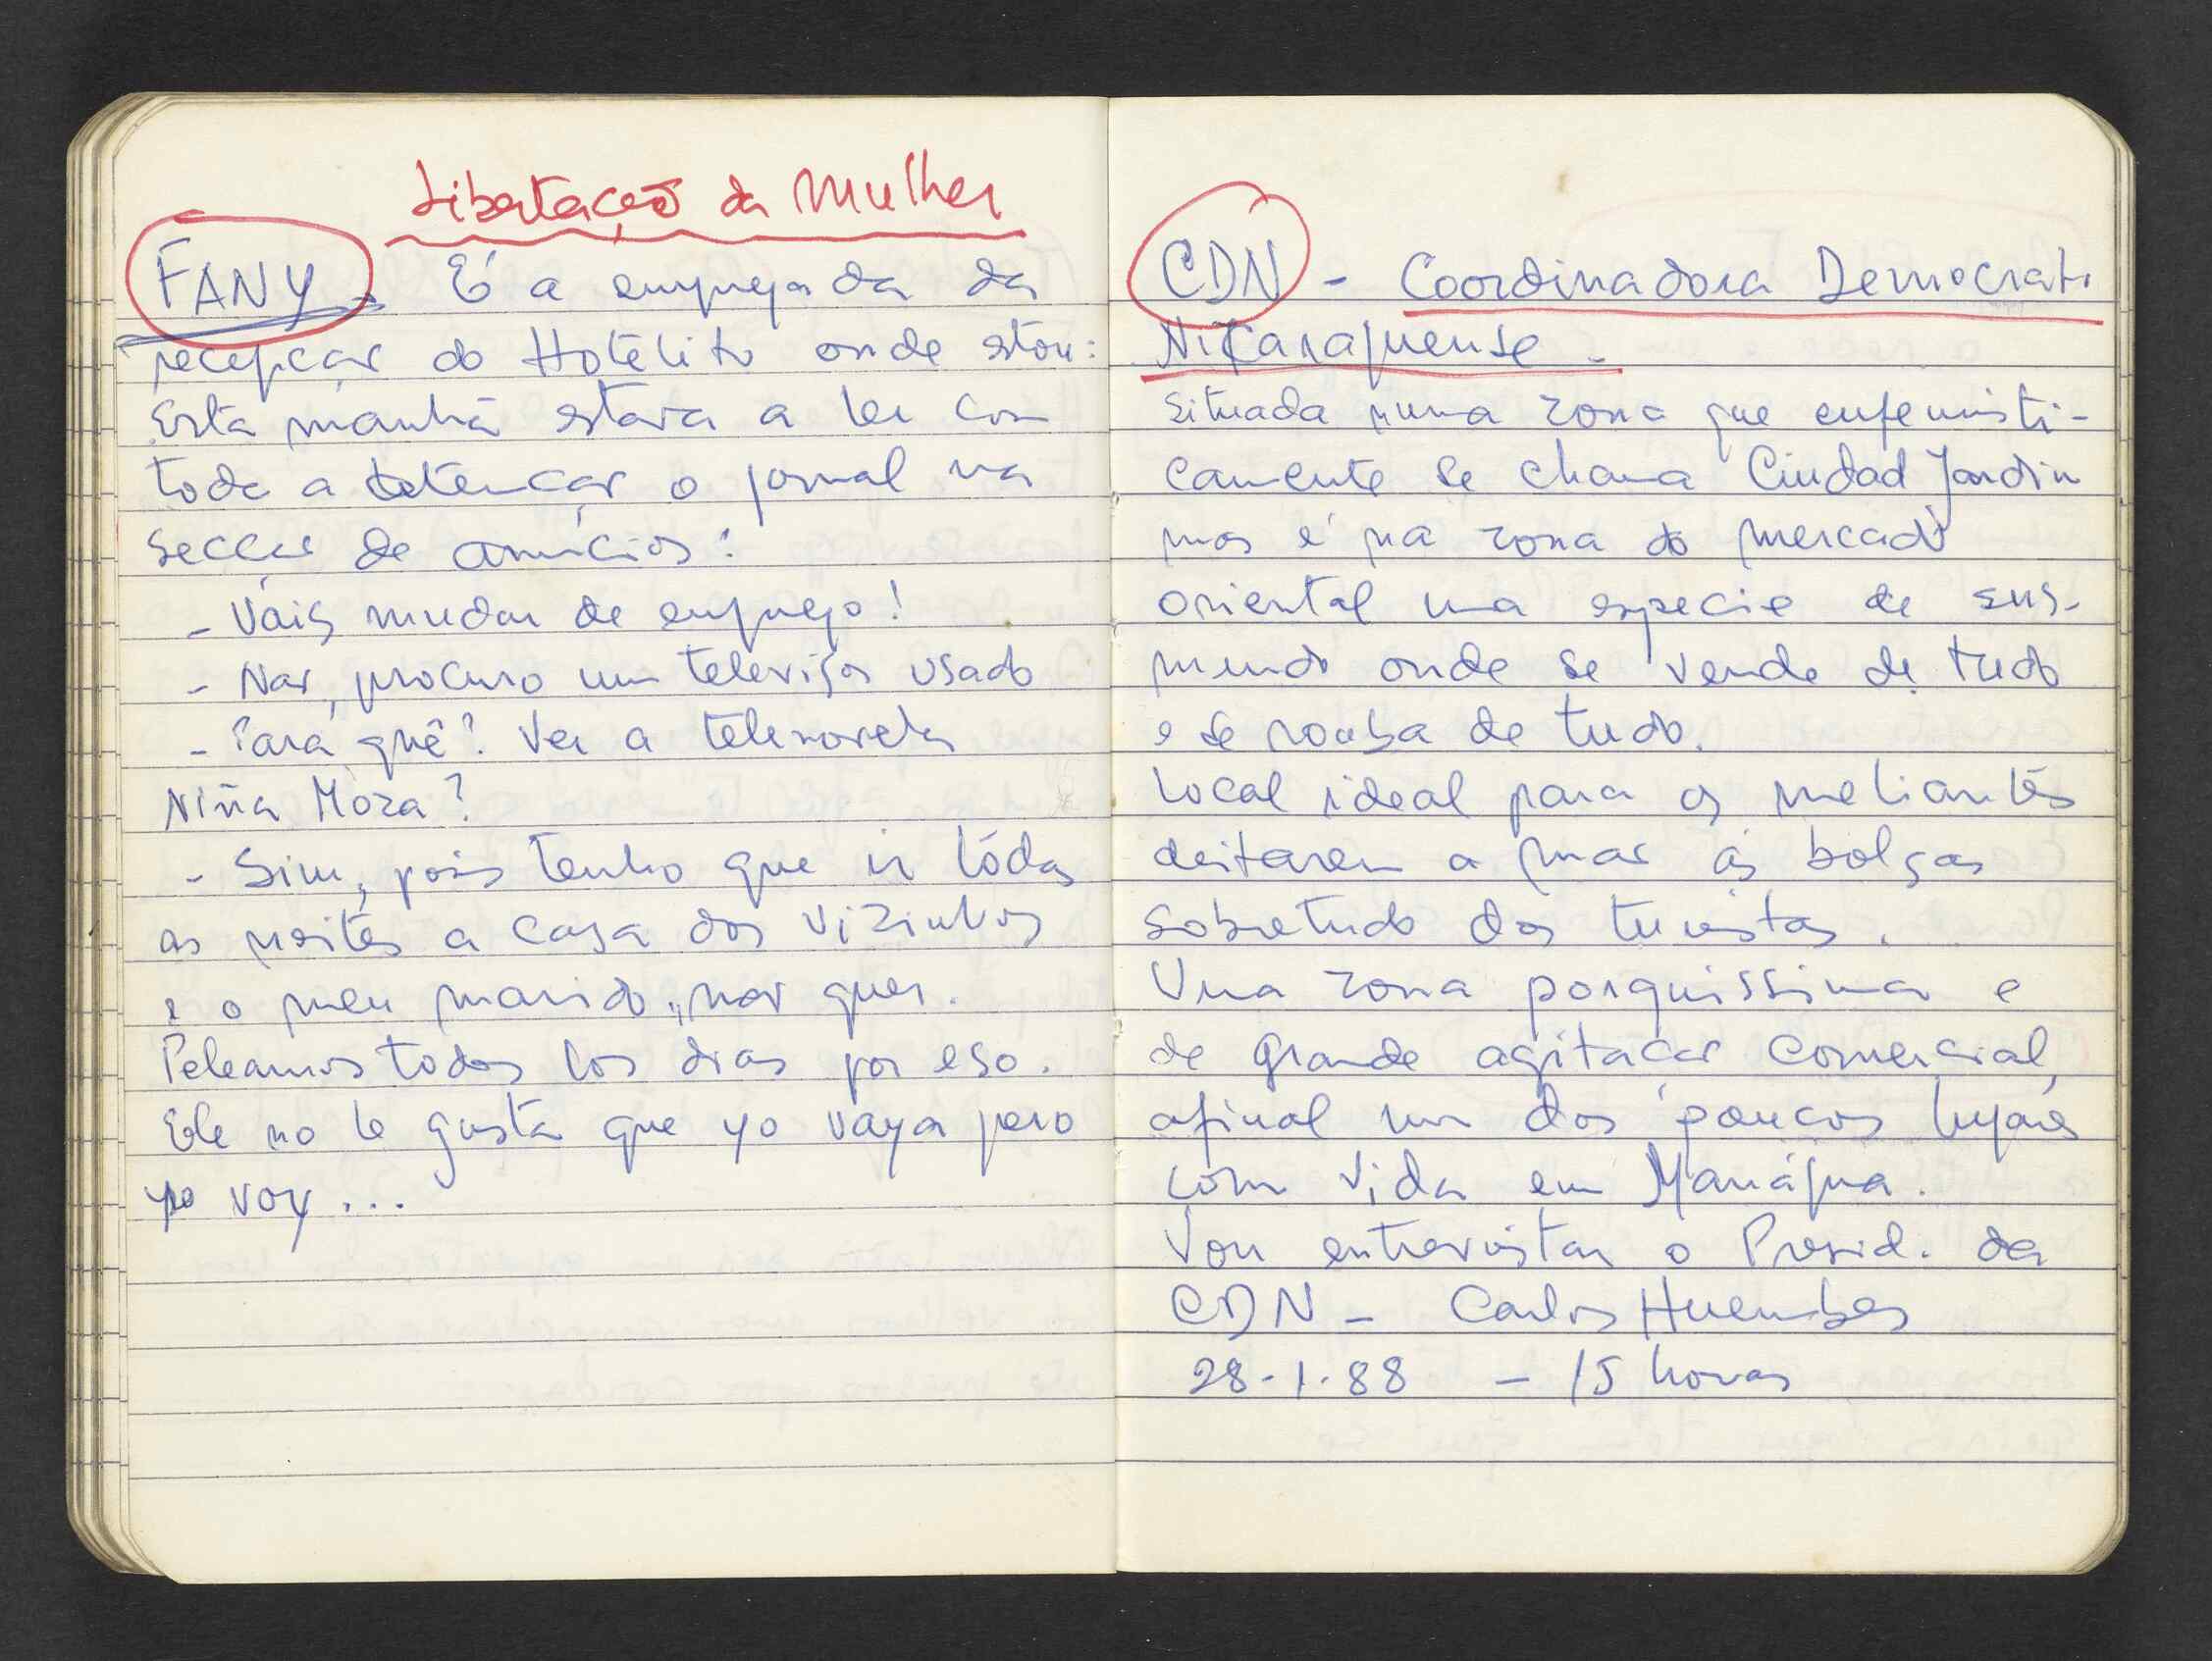 Libertação da Mulher
FANY - É a empregada da
recepção do Hotelito onde estou:
Esta manhã estava a ler com
toda a atenção o jornal na
secção de anúncios:
- Vais mudar de emprego!
- Não, procuro um televisor usado
- Para quê? Ver a telenovela
Niña Moza?
- Sim, pois tenho que ir tódas
as noites a casa dos vizinhos
e o meu marido não quer.
Peleamos todos los dias por eso.
Ele no le gusta que yo vaya pero
yo voy...
CDN - Coordinadora Democrati
Nicaraguense -
Situada numa zona que eufemisti-
camente se chama Ciudad Jardin
mas é na zona do mercado
oriental uma especie de
mundo onde se vende de tudo
e se rouba de tudo.
Local ideal para os meliantes
deitarem a mão ás bolsas
sobretudo dos turistas.
Uma zona porquissima e
de grande agitação comercial,
afinal um dos poucos lugares
com vida em Manágua.
Vou entrevistar o Presid. da
CDN - Carlos Huembes
28-1-88 - 15 horas